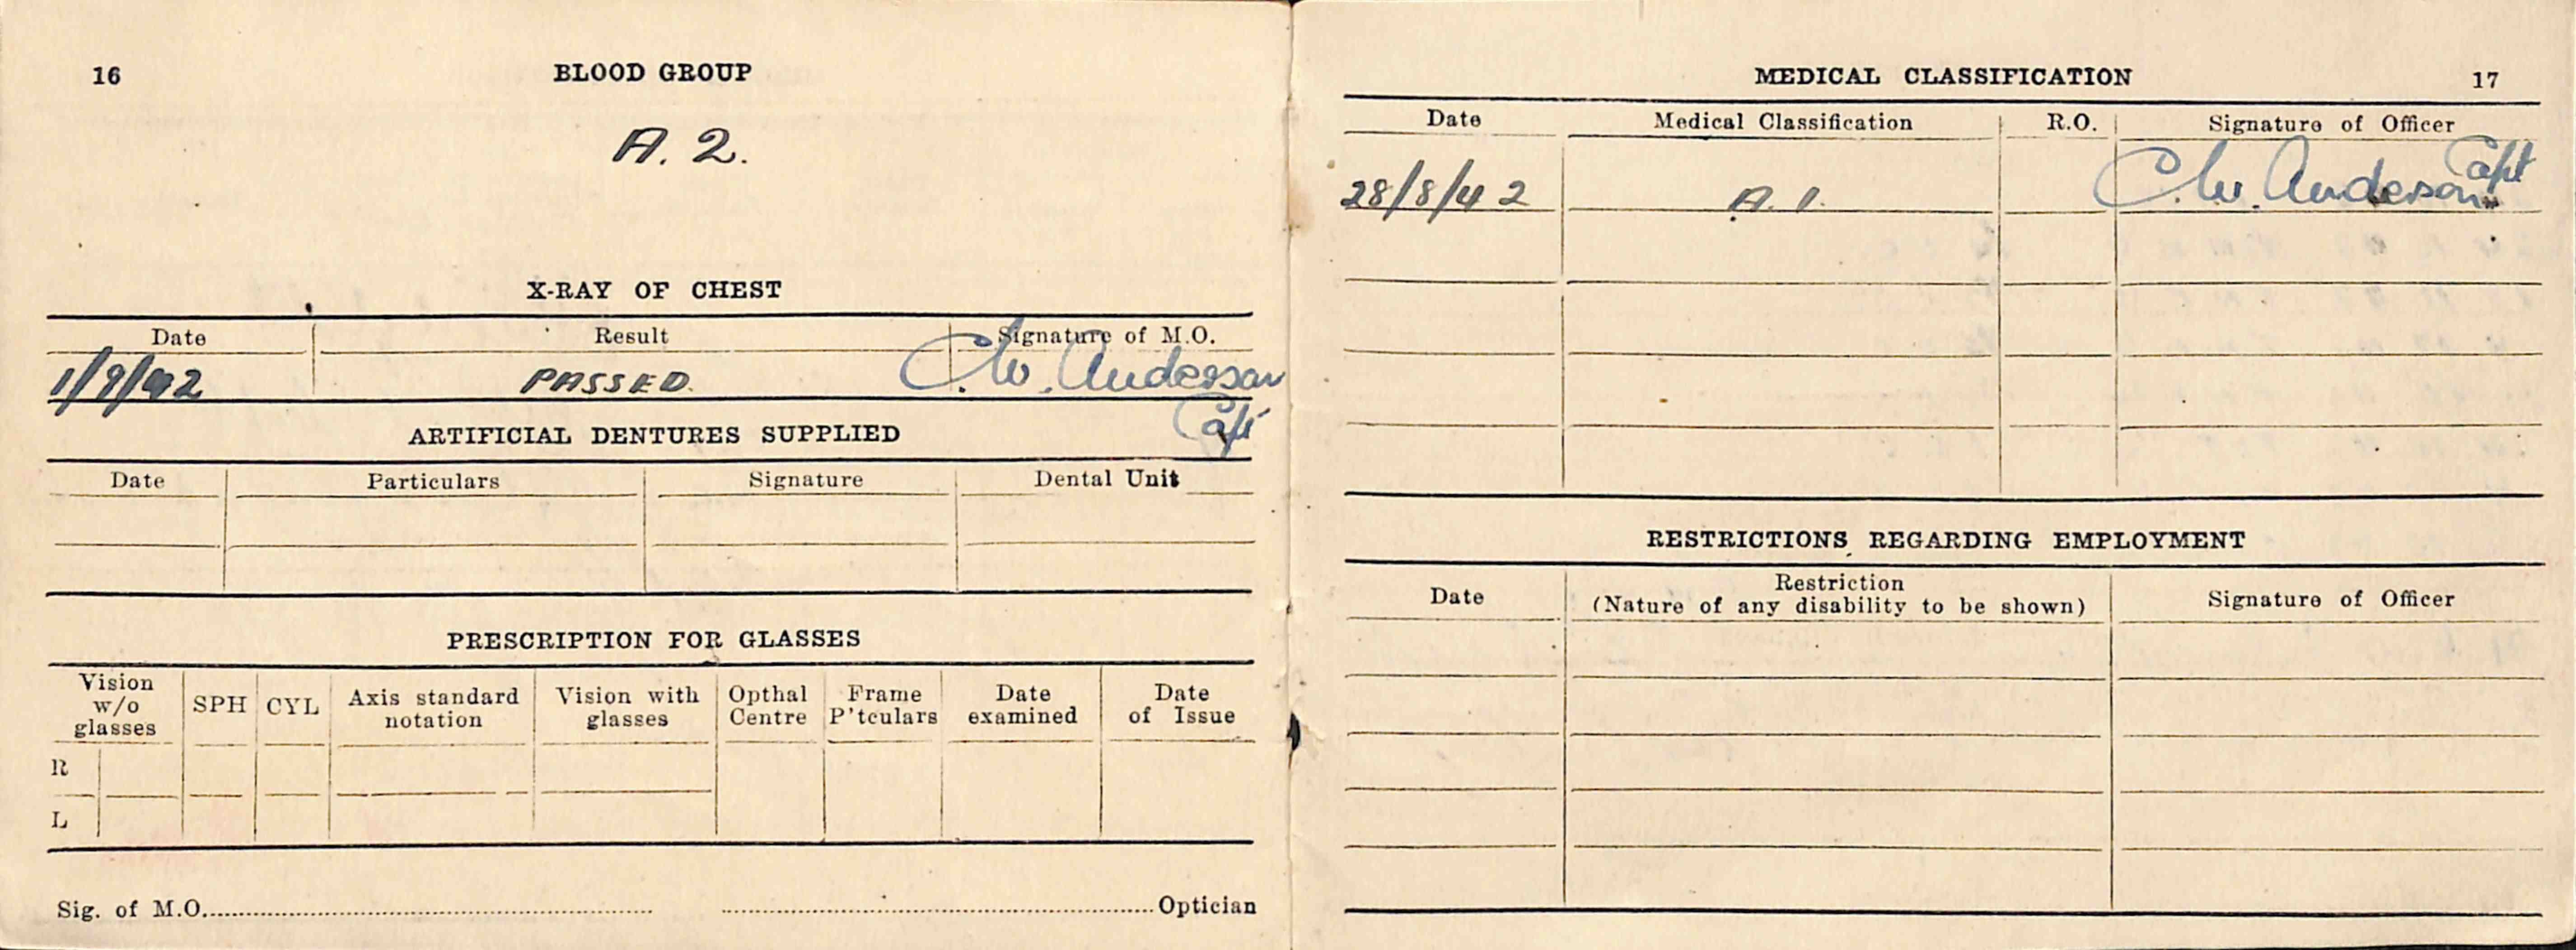 16
BLOOD GROUP
A. 2.
X-RAY OF CHEST
Date Result Signature of M.O.
1/9/42 PASSED. C.W. Anderson
Capt
ARTIFICIAL DENTURES SUPPLIED
Date Particulars Signature Dental Unit
PRESCRIPTION FOR GLASSES
Vision w/o glasses SPH CYL Axis standard notation Vision with glasses Opthal Centre Frame P'tculars Date examined Date of Issue
R
L
Sig. of M.O. Optician
MEDICAL CLASSIFICATION 17
Date Medical Classification R.O. Signature of Officer
28/8/42 A.1. C.W. Anderson Capt
RESTRICTIONS REGARDING EMPLOYMENT
Date Restriction Signature of Officer
(Nature of any disability to be shown)